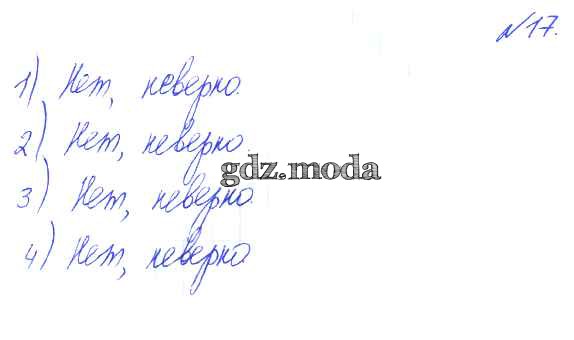 №17.
1) Нет, неверно.
2) Нет, неверно.
gdz.moda
3) Нет, неверно.
4) Нет, неверно.